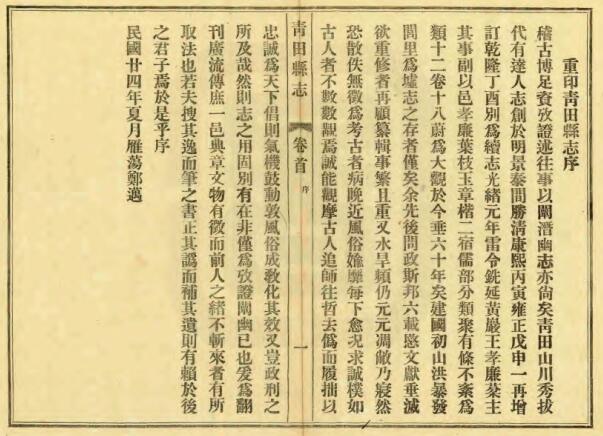 重印靑田縣志序
稽古博足資攷證述往事以闡潛幽志亦尙矣靑田山川秀拔
代有達人志創於明景泰間勝清康熙丙寅雍正戊申一再增
訂乾隆丁酉別爲續志光緒元年雷令銑延黃巖王孝廉棻主
其事副以邑孝廉葉枝玉章楷二宿儒部分類聚有條不紊爲
類十二卷十八蔚爲大觀於今垂六十年矣建國初山洪暴發
閭里爲墟志之存者僅矣余先後問政斯邦六載愍文獻垂滅
欲重修者再顧纂輯事繁且重又水旱頻仍元元凋敝乃寢然
恐散佚無徵爲考古者病晚近風俗媮靡每下愈況求誠樸如
古人者不數數覯焉誠能觀摩古人追師往哲去僞而履拙以
靑田縣志
卷首
序
一
忠誠爲天下倡則氣機鼓動敦風俗成敎化其效又豈政刑之
所及哉然則志之用固別有在非僅爲攷證闡幽已也爰爲翻
刊廣流傳庶一邑典章文物有徵而前人之緒不斬來者有所
取法也若夫搜其逸而筆之書正其譌而補其遺則有賴於後
之君子焉於是乎序
民國廿四年夏月雁蕩鄭邁